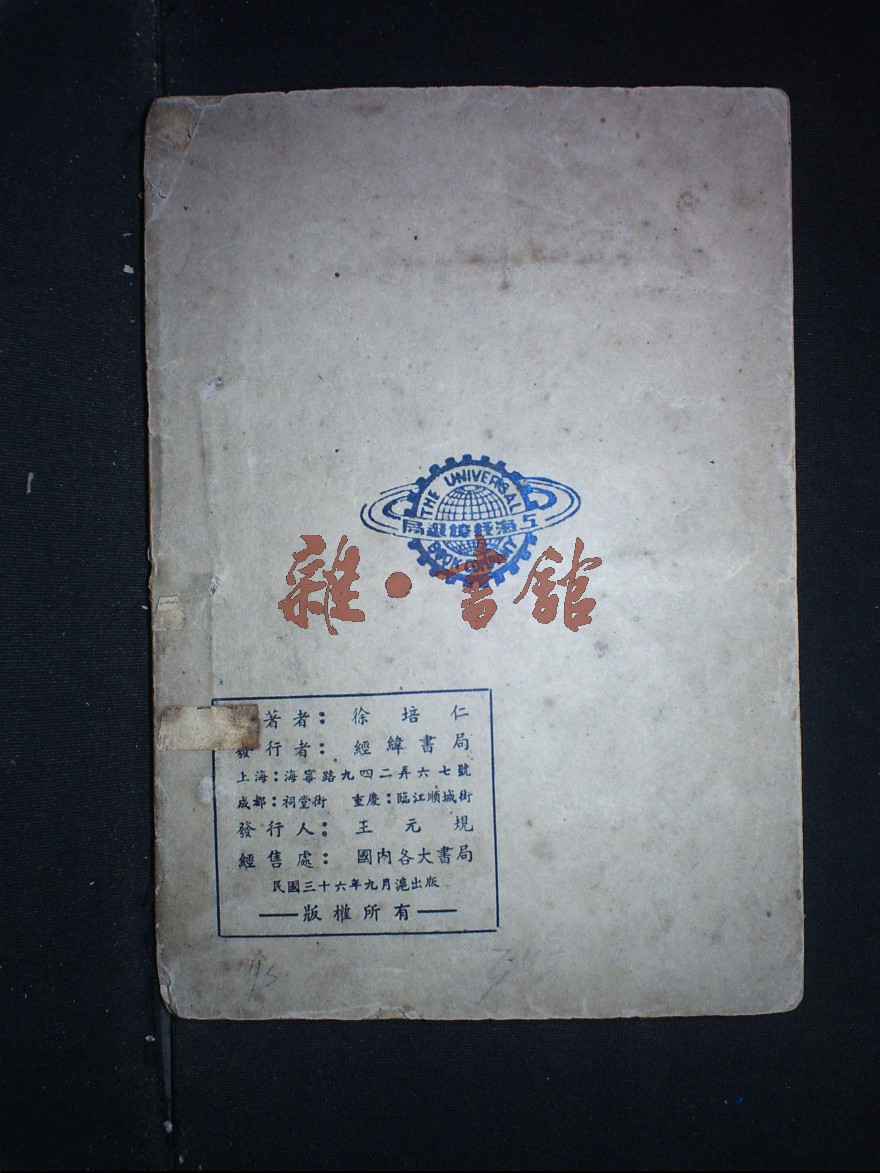 THE UNIVERSAL
上海經緯書局
雜·書館
著者：徐培仁
發行者：經緯書局
上海：海寧路九四二弄六七號
成都：祠堂街 重慶：臨江順城街
發行人：王元規
經售處：國內各大書局
民國三十六年九月滬出版
版權所有